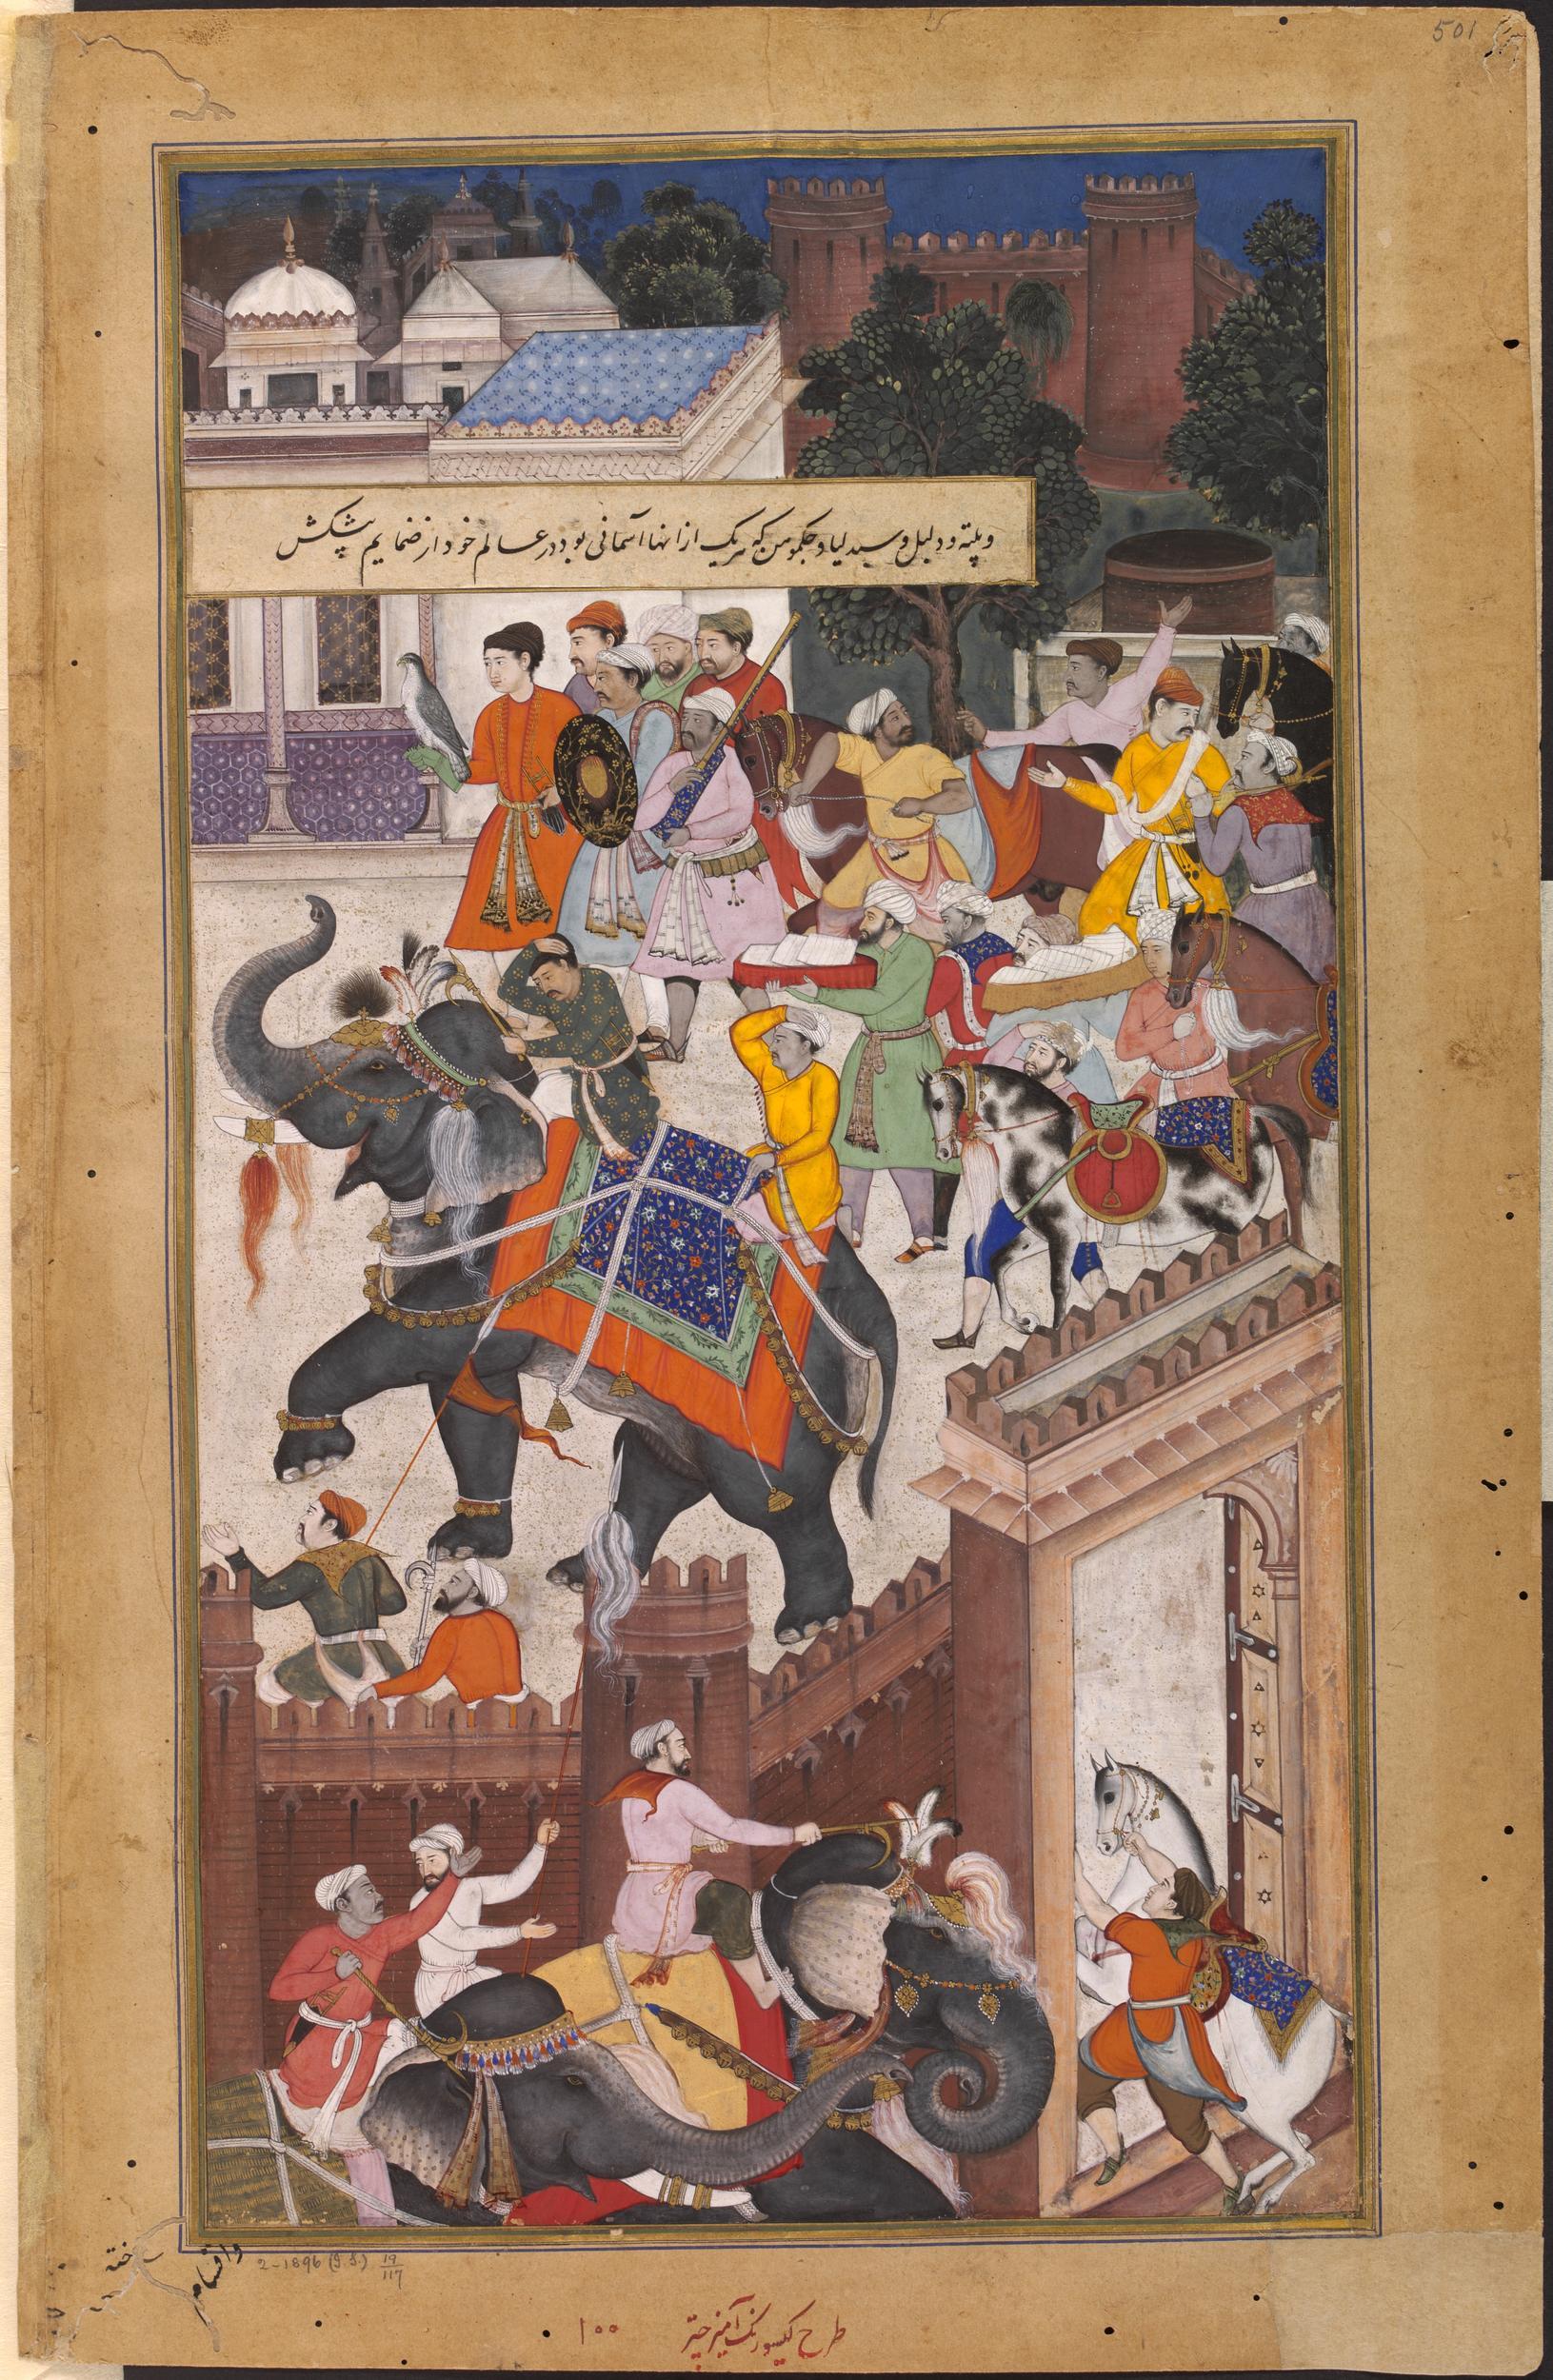 501
و پلته و دلیل و سبدلیا و جکموهن که هر یک از انها آسمانی بود در عالم خود از ضمایم پیشکش
2-1896 (I.S.) 19/117
طرح کیسو رنگ آمیز چتر
۱۰۰